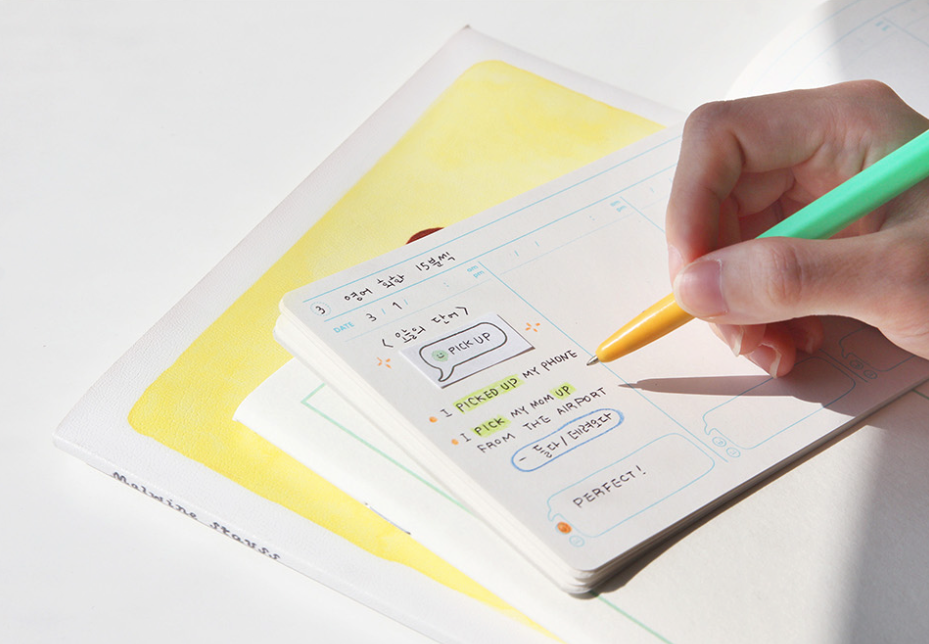 3 영어 회화 15분씩
DATE 3 / 9 / :
< 오늘의 단어 >
PICK UP
I PICKED UP MY PHONE
I PICK MY MOM UP
FROM THE AIRPORT
- 들다/데려오다
PERFECT!
Malwine stauss